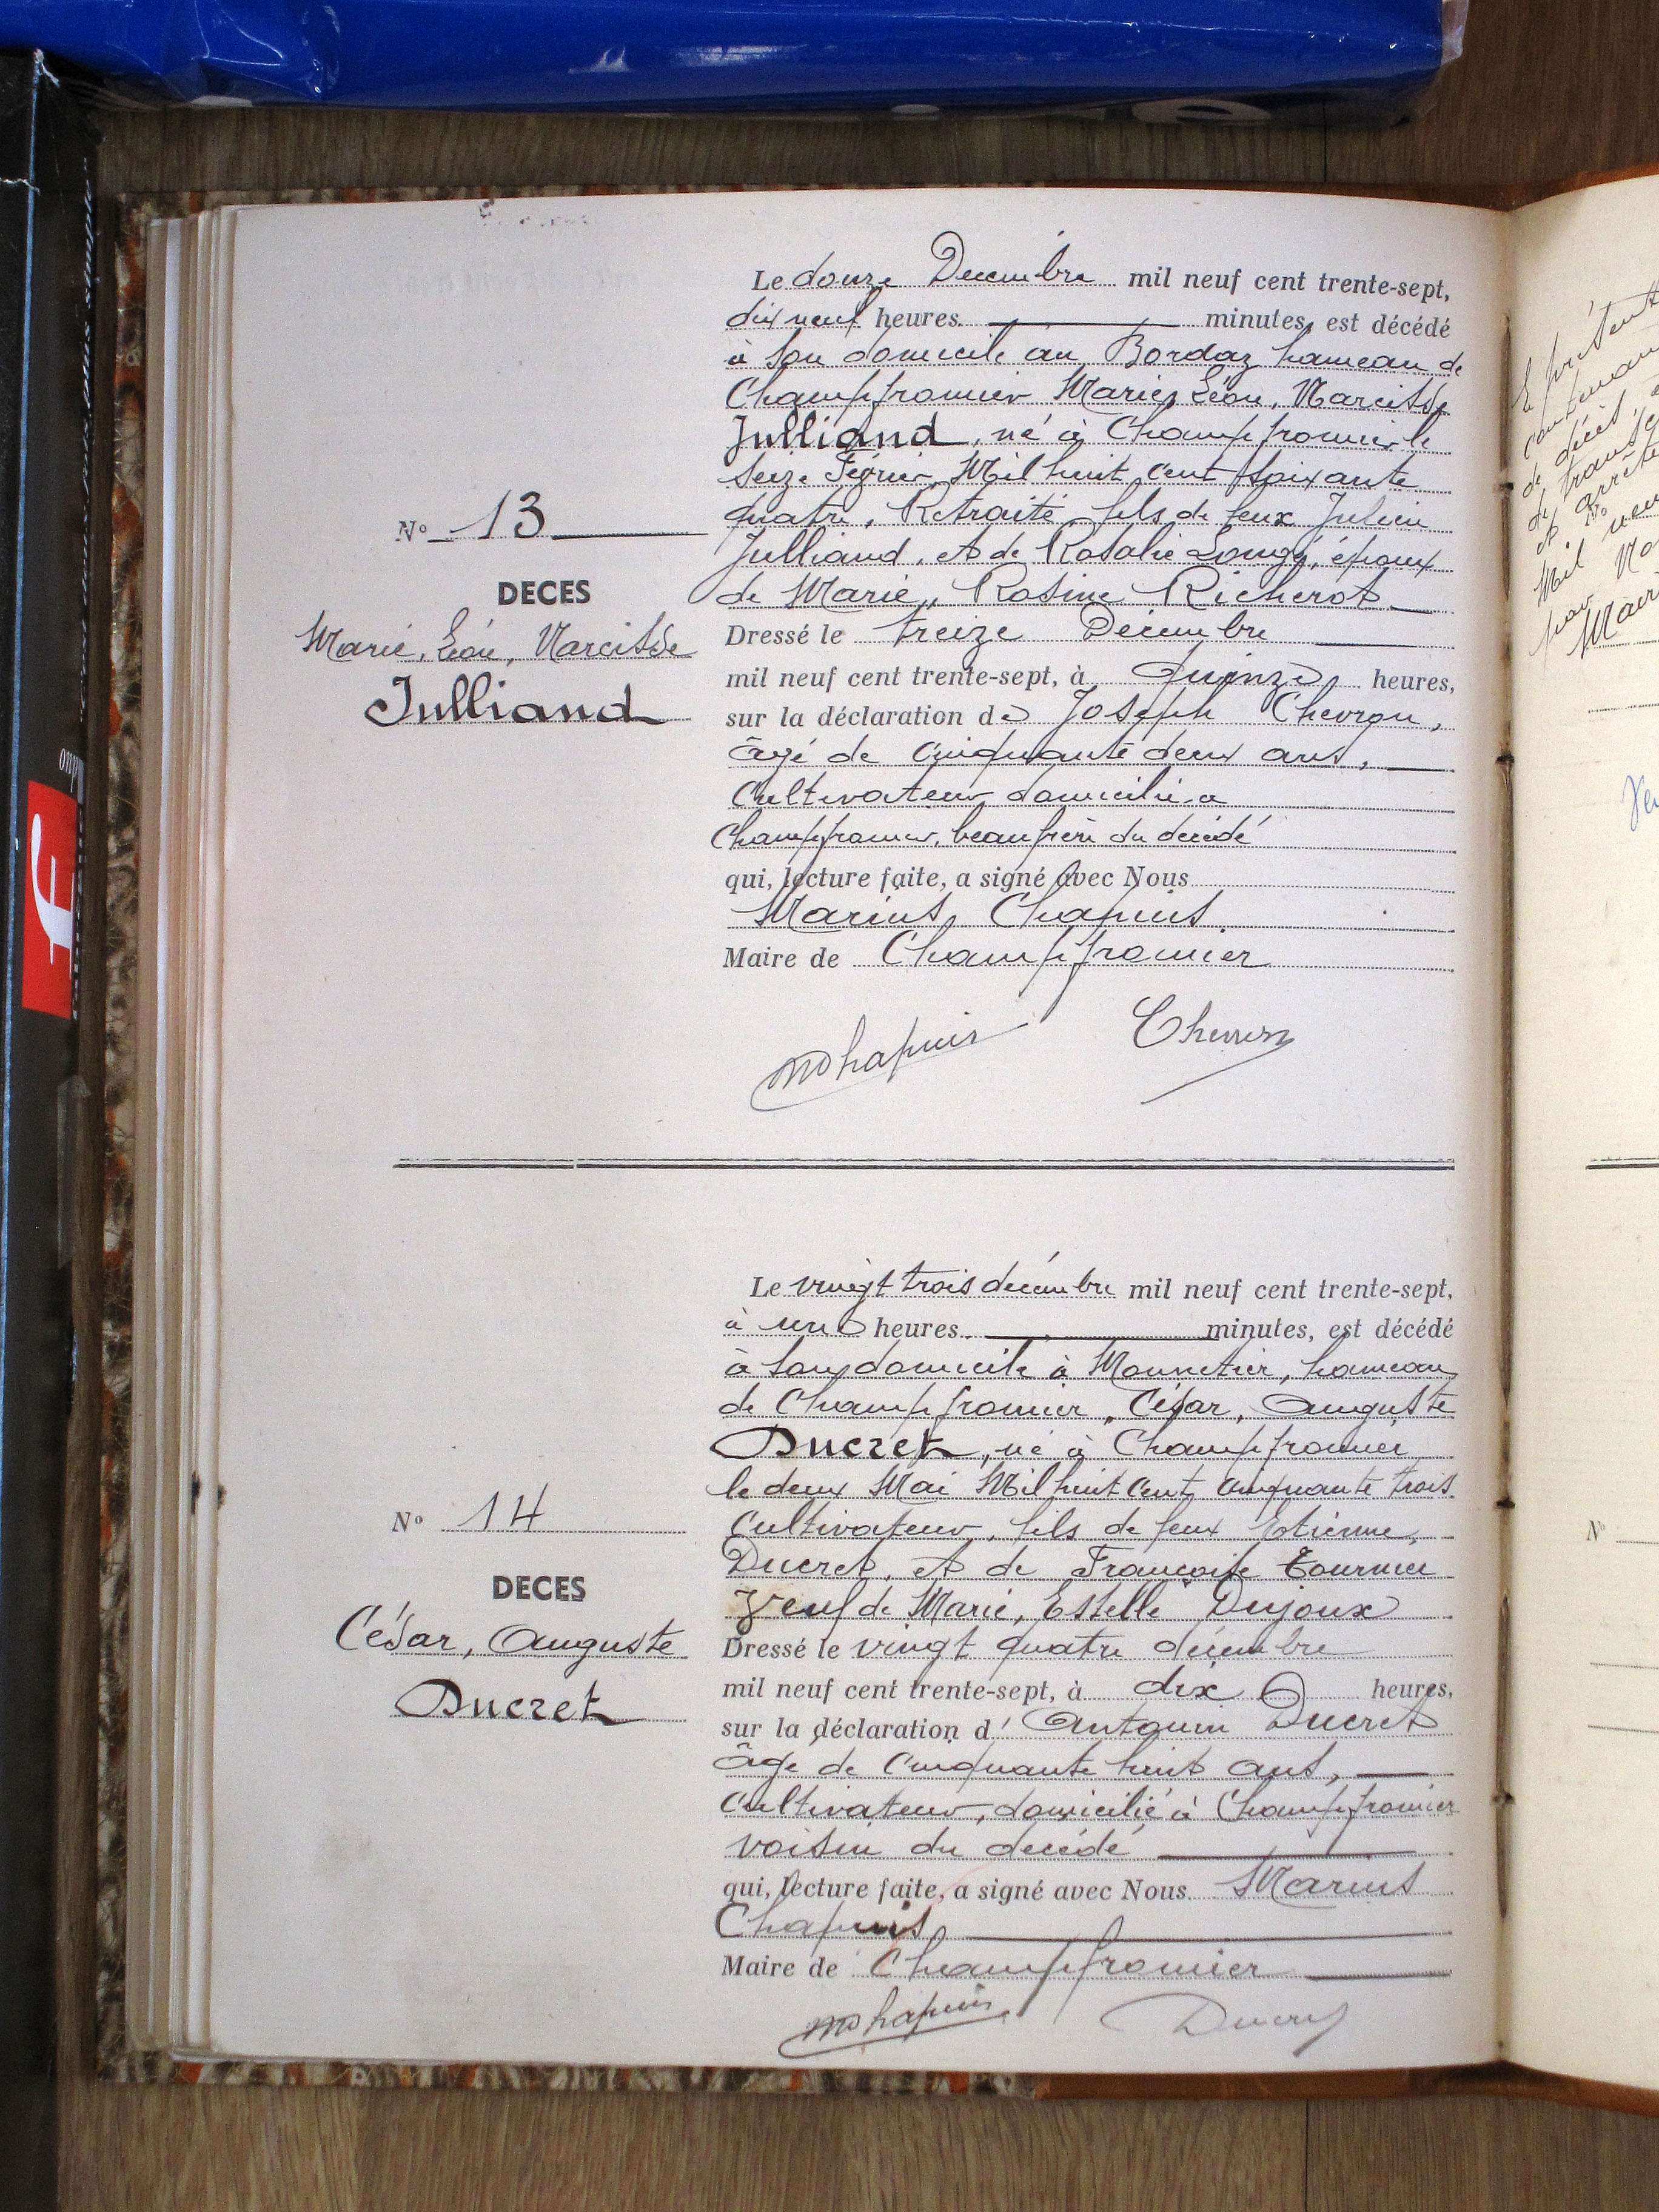 Le douze Decembre mil neuf cent trente-sept,
dix neuf heures minutes, est décédé
à son domicile au Bordaz hameau de
Champfromier Marie, Léon, Narcisse
Julliand, né à Champfromier le
seize Février Mil huit cent soixante
quatre, Retraité, fils de feux Julien
Julliand, et de Rosalie, époux
de Marie, Rosine Richerot
N° 13
DECES
Marie, Léon, Narcisse
Julliand
Dressé le treize Décembre
mil neuf cent trente-sept, à Quinze heures,
sur la déclaration de Joseph Chevron,
âgé de cinquante deux ans,
Cultivateur domicilié à
Champfromier, beaufrère du décédé
qui, lecture faite, a signé avec Nous
Marius Chapuis
Maire de Champfromier
MChapuis Chevron
Le vingt trois décembre mil neuf cent trente-sept,
à une heures minutes, est décédé
à son domicile à Monnetier, hameau
de Champfromier, César, Auguste
Ducret, né à Champfromier
le deux Mai Mil huit cent cinquante trois
Cultivateur, fils de feux Etienne
Ducret, et de Françoise Tournier
Veuf de Marie, Estelle Dujoux
N° 14
DECES
César, Auguste
Ducret
Dressé le vingt quatre décembre
mil neuf cent trente-sept, à dix heures,
sur la déclaration d' Antonin Ducret
âge de cinquante huit ans,
Cultivateur, domicilié à Champfromier
voisin du décédé
qui, lecture faite, a signé avec Nous Marius
Chapuis
Maire de Champfromier
MChapuis Ducret
N°